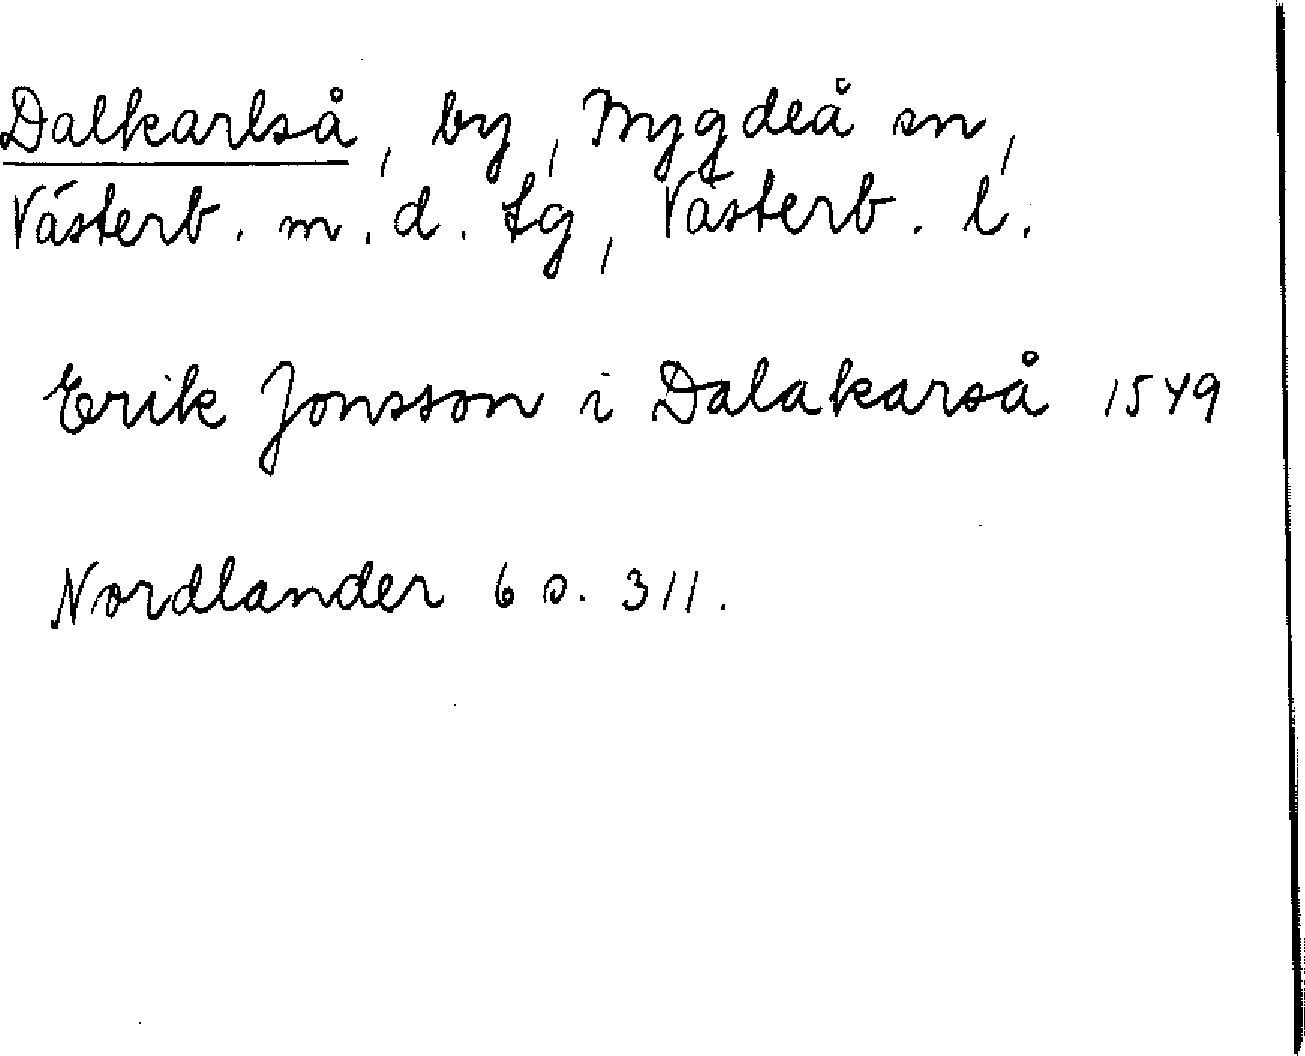 Dalkarlså, by, Nygdeå sn,
Västerb. m. d. tg, Västerb. l.
Erik Jonsson i Dalakarså 1549
Nordlander 6 s. 311.